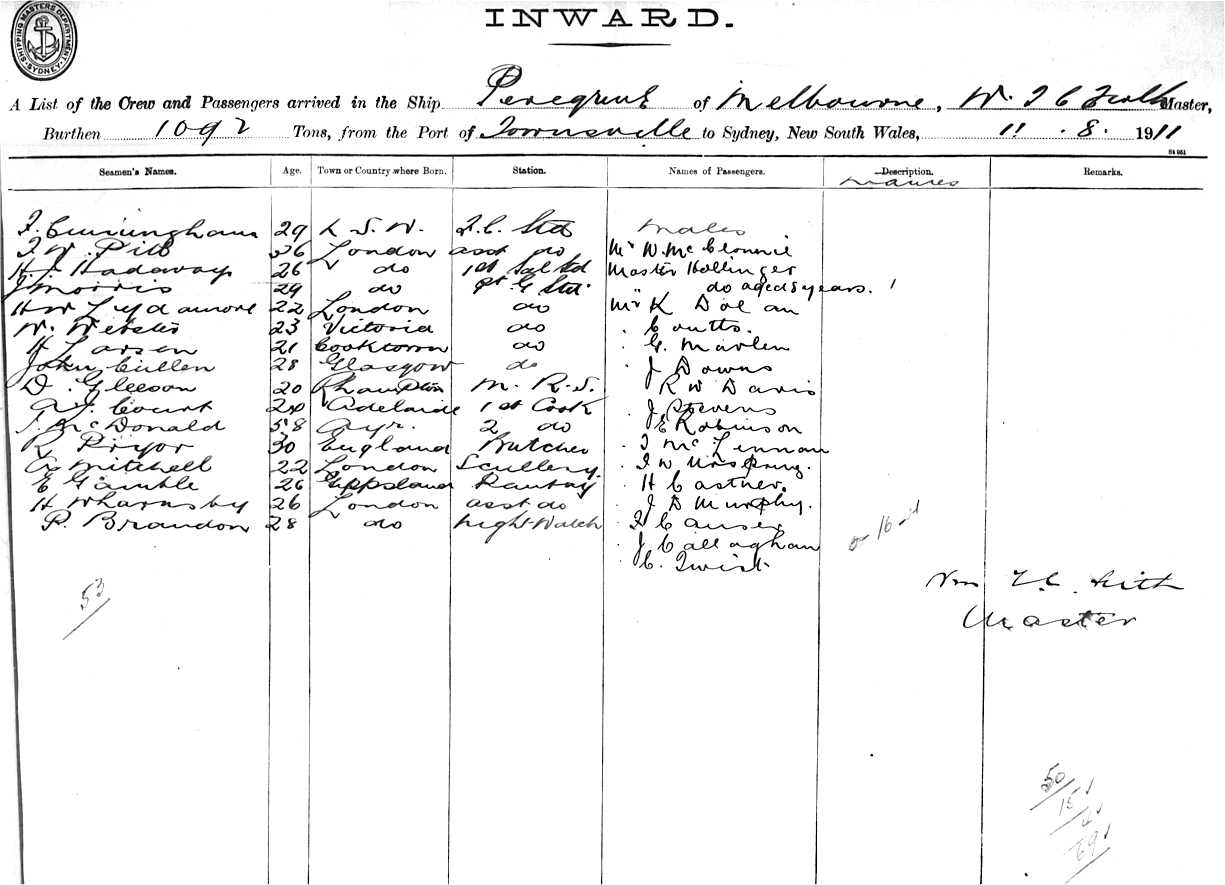 SHIPPING MASTERS DEPARTMENT SYDNEY
INWARD.
A List of the Crew and Passengers arrived in the Ship Peregrine of Melbourne, W. T C Master,
Burthen 1092 Tons, from the Port of Townsville to Sydney, New South Wales, 11 . 8. 1911
Seamen's Names. Age. Town or Country where Born. Station. Names of Passengers. Description. Remarks.
Males
J. Cunningham 29 N. S. W.
36 London asst do Mr W.
H. J. Hadaway 26 do 1st Master Hollinger
J Morris 29 do do aged 8 years. 1
22 London do K Dolan
W. Webster 23 Victoria do " Coutts.
H Larsen 21 Cooktown do " G.
John Cullen 28 Glasgow do " J Downs
D. Gleeson 20 Rhampton M. R. S. " R W Davis
A. J. Court 24 Adelaide 1st Cook " J Stevens
J. McDonald 58 Ayr. 2 do " E Robinson
R Pryor 30 England Butcher " J McLennan
A Mitchell 22 London Scullery " J W
E Gamble 26 Gippsland Pantry " H Castner.
H Wharnsby 26 London asst do " J D Murphy.
P. Brandon 28 do Night Watch
" J Callaghan
" C. Twist
53
16
Wm T. C.
Master
50
15
4
69